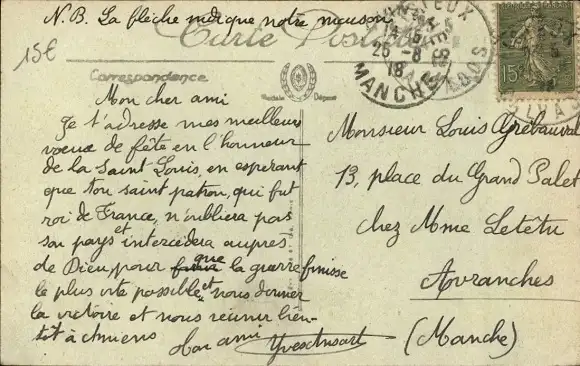 N.B. La flèche indique notre maison
15€
Carte Postale
Correspondance
MANCHE
25-8
18
CALVADOS
15
Mon cher ami
Je t'adresse mes meilleurs
voeux de fête en l'honneur
de la Saint Louis, en espérant
que ton saint patron, qui fut
roi de France, n'oubliera pas
son pays et intercèdera auprès
de Dieu, pour que la guerre finisse
le plus vite possible, et nous donner
la victoire et nous réunir bien-
tôt à Amiens
Ton ami Yves Ansart
Monsieur Louis Grébauval
13, place du Grand Palet
chez Mme Letêtu
Avranches
(Manche)